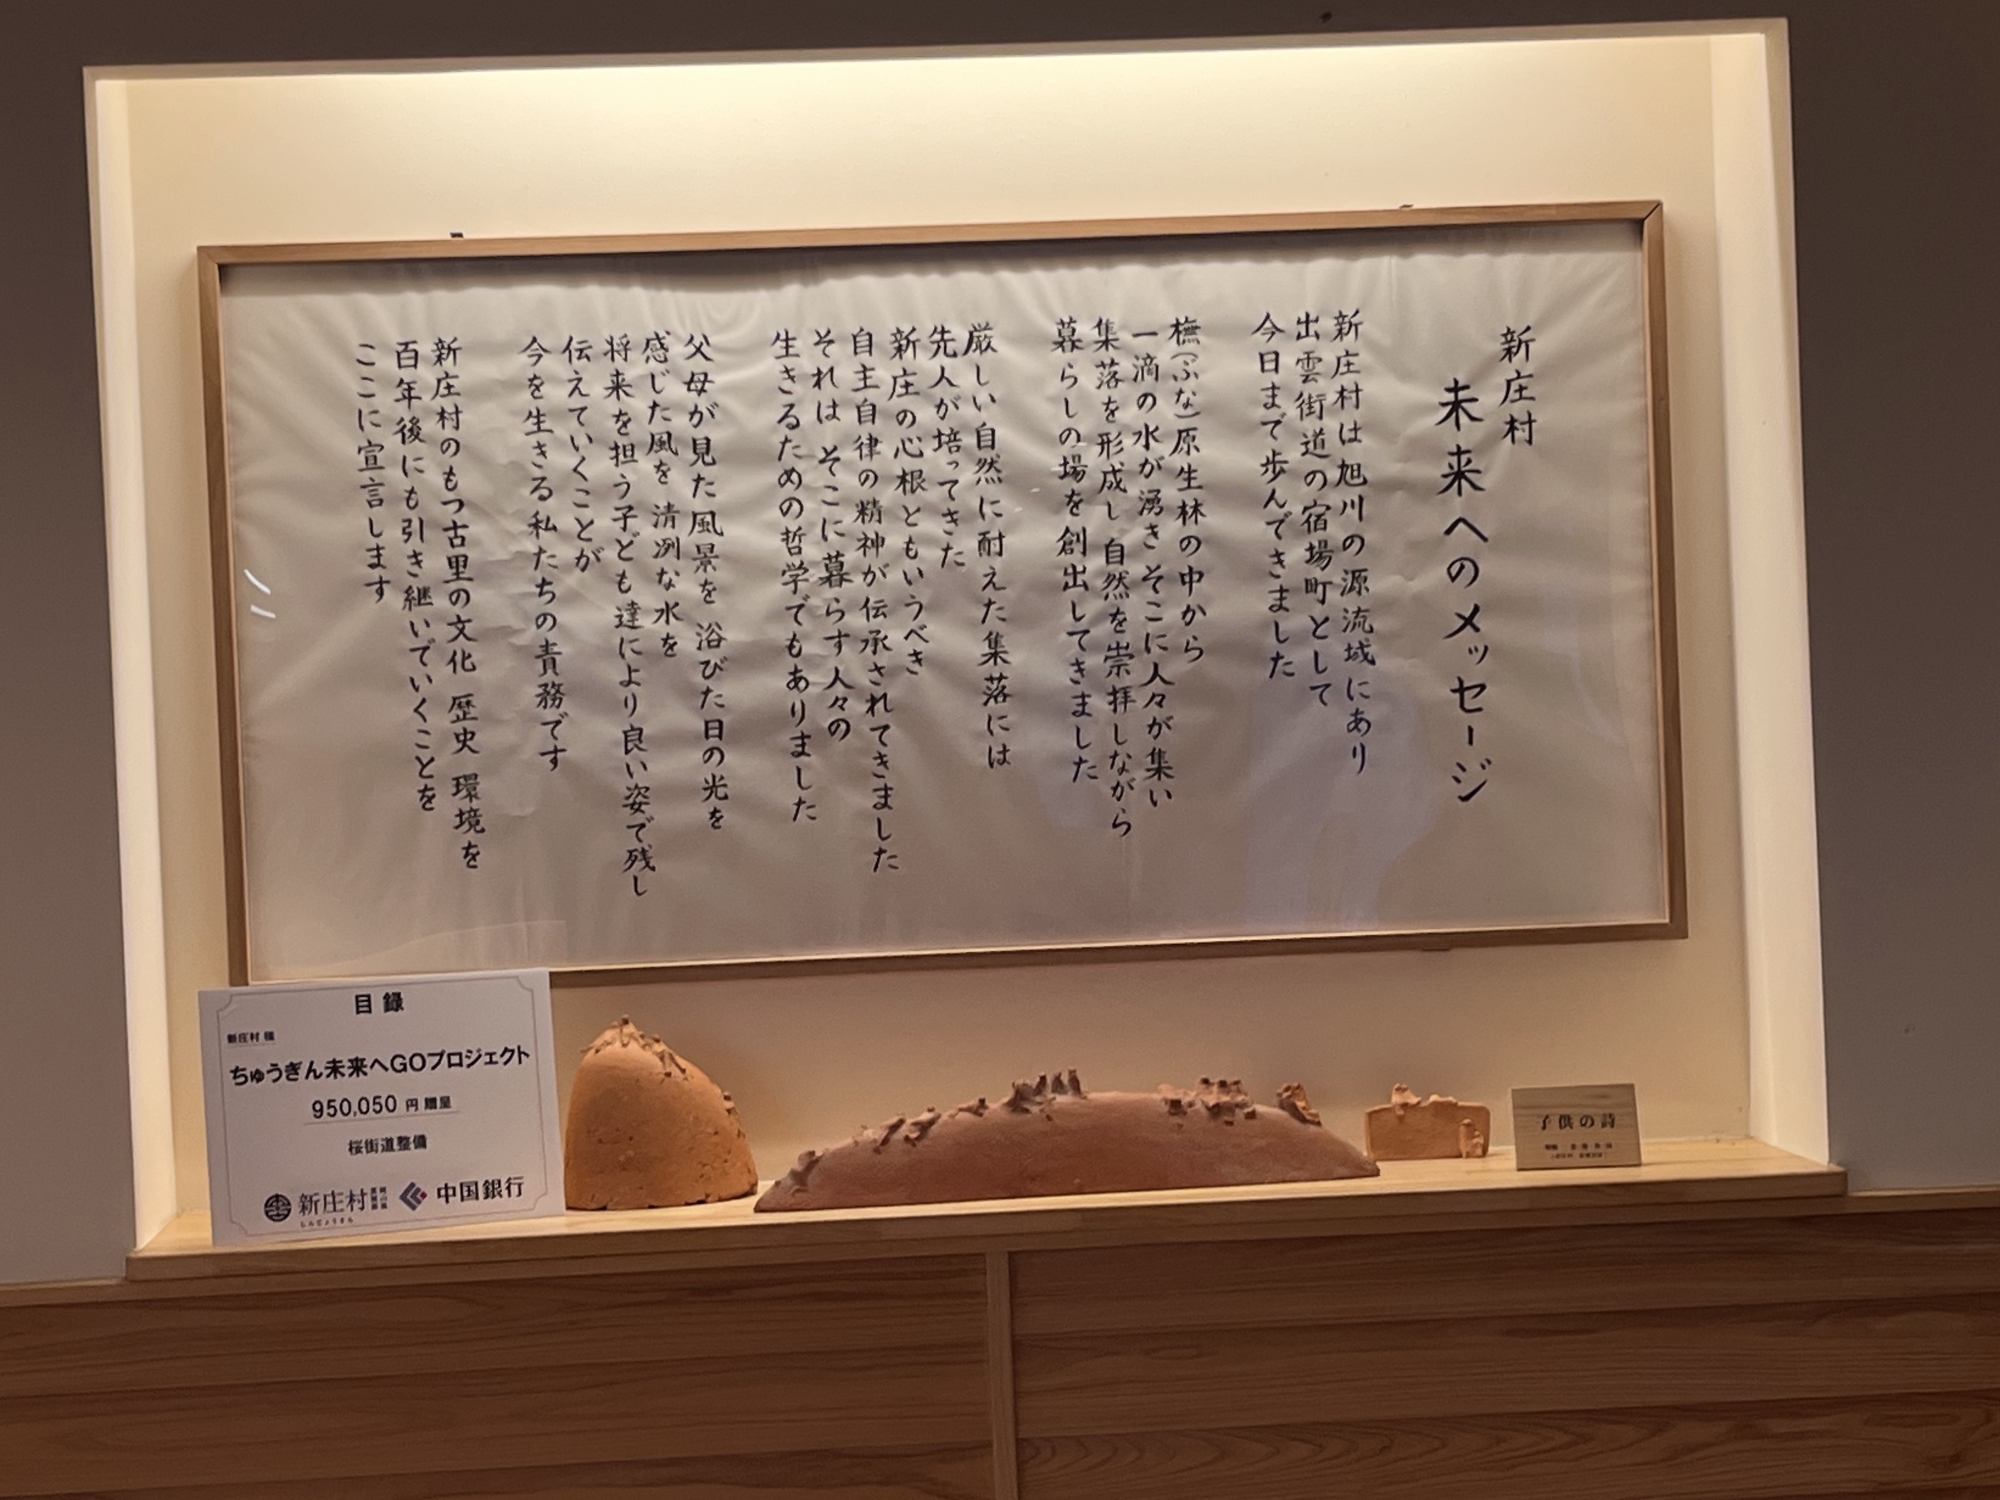 新庄村
未来へのメッセージ
新庄村は旭川の源流域にあり
出雲街道の宿場町として
今日まで歩んできました
橅(ぶな)原生林の中から
一滴の水が湧きそこに人々が集い
集落を形成し自然を崇拝しながら
暮らしの場を創出してきました
厳しい自然に耐えた集落には
先人が培ってきた
新庄の心根ともいうべき
自主自律の精神が伝承されてきました
それは そこに暮らす人々の
生きるための哲学でもありました
父母が見た風景を 浴びた日の光を
感じた風を 清冽な水を
将来を担う子ども達により良い姿で残し
伝えていくことが
今を生きる私たちの責務です
新庄村のもつ古里の文化 歴史 環境を
百年後にも引き継いでいくことを
ここに宣言します
目録
新庄村 様
ちゅうぎん未来へGOプロジェクト
950,050 円 贈呈
桜街道整備
新庄村
しんじょうそん
中国銀行
子供の詩